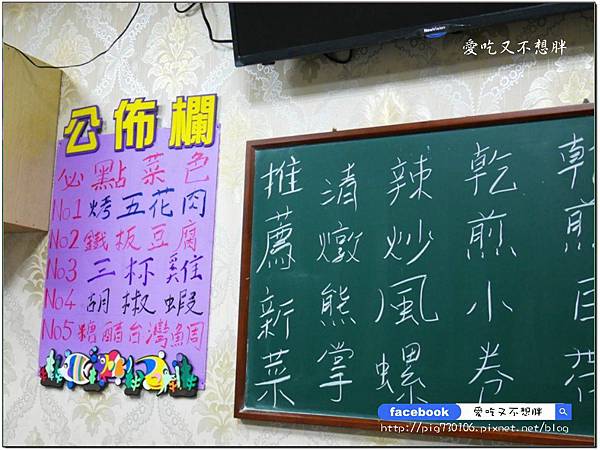 愛吃又不想胖
公佈欄
必點菜色
No1烤五花肉
No2鐵板豆腐
No3三杯雞
No4胡椒蝦
No5糖醋台灣鯛
推薦新菜
清燉熊掌
辣炒風螺
乾煎小卷
乾煎
facebook
愛吃又不想胖
http://pig730106.pixnet.net/blog